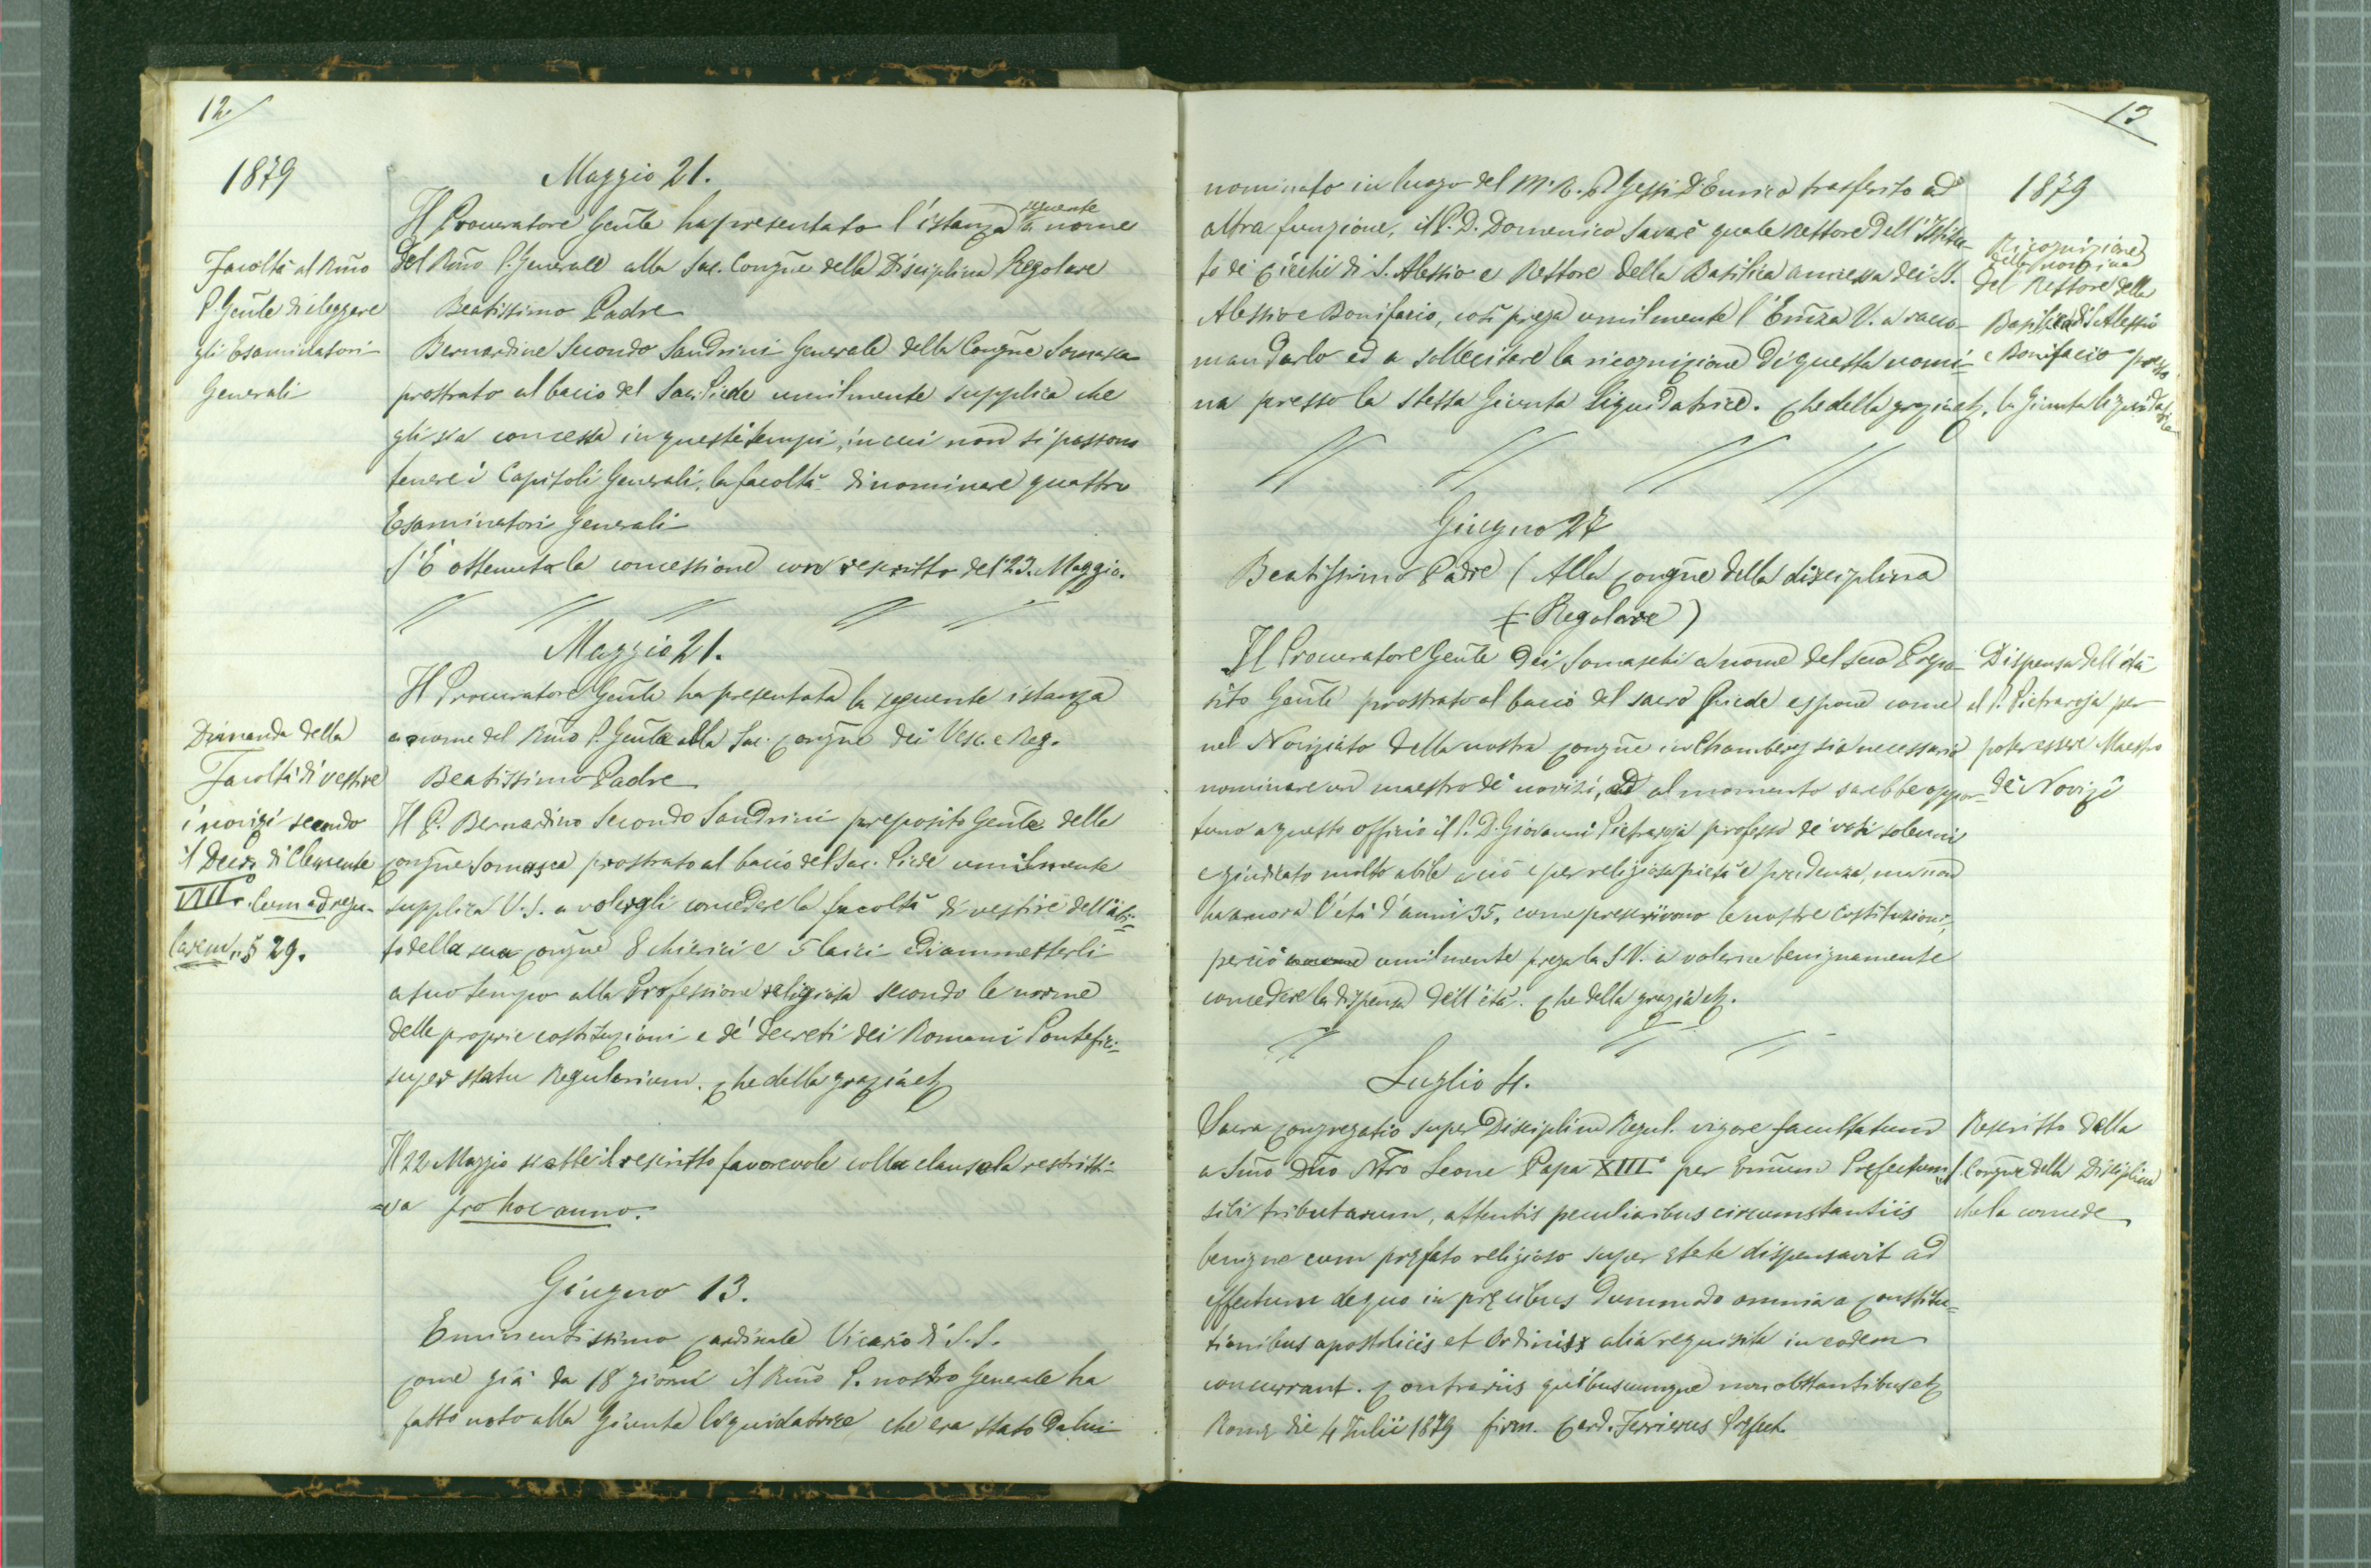 12.
1879
Maggio 21.
Il Procuratore Gen̄le ha presentato l'istanza seguente a nome
del Rm̄o P. Generale alla Sac. Congñe della Disciplina Regolare
Facoltà al Rm̄o
P. Gen̄le di eleggere
gli Esaminatori
Generali
Beatissimo Padre
Bernardino Secondo Sandrini Generale della Congñe Somasca
prostrato al bacio del Sac. Piede umilmente supplica che
gli sia concessa in questi tempi, in cui non si possono
tenere i Capitoli Generali, la facoltà di nominare quattro
Esaminatori Generali
S'è ottenuta la concessione con rescritto del 23. Maggio.
Maggio 21.
Il Procuratore Gen̄le ha presentata la seguente istanza
a nome del Rm̄o P. Gen̄le alla Sac. Congñe dei Vesc. e Reg.
Dimanda della
Facoltà di vestire
i novizi secondo
il Decr. di Clemente
VIII° Cum ad regu-
larem, § 29.
Beatissimo Padre
Il P. Bernardino Secondo Sandrini preposito Gen̄le della
Congñe Somasca prostrato al bacio del Sac. Piede umilmente
supplica V. S. a volergli concedere la facoltà di vestire dell'abi=
to della sua Congñe 8 chierici e 5 laici e di ammetterli
a suo tempo alla Professione religiosa secondo le norme
delle proprie costituzioni e de' decreti dei Romani Pontefici=
super statu Regularium. Che della grazia etc
Il 22 Maggio s'ebbe il rescritto favorevole colla clausola restritti=
=va pro hoc anno.
Giugno 13.
Eminentissimo Cardinale Vicario di S. S.
Come già da 18 giorni il Rm̄o P. nostro Generale ha
fatto noto alla Giunta liquidatrice che era stato da lui
13
1879
nominato in luogo del M. R. P. Gessi D. Enrico trasferito ad
altra funzione, il P. D. Domenico Savarè quale Rettore dell'Istitu-
to de' Ciechi di S. Alessio e Rettore della Basilica annessa dei SS.
Alessio e Bonifacio, così prega umilmente l'Em̄za V. a racco-
mandarlo ed a sollecitare la ricognizione di questa nomi-
na presso la stessa Giunta liquidatrice. Che della grazia etc.
Ricognizione
della nomina
del Rettore della
Basilica di S. Alessio
e Bonifacio presso
la Giunta liquidatrice
Giugno 27
Beatissimo Padre (Alla Congñe della disciplina
(Regolare)
Il Procuratore Gen̄le dei Somaschi a nome del suo Prepo-
sito Gen̄le prostrato al bacio del sacro Piede espone come
nel Noviziato della nostra Congñe in Chambery sia necessario
nominare un maestro de' novizi, ed al momento sarebbe oppor-
tuno a questo officio il P. D. Giovanni Pietraroja professo de' voti solenni
e giudicato molto abile a ciò e per religiosa pietà e prudenza, ma non
ha ancora l'età d'anni 35, come prescrivono le nostre Costituzioni,
perciò umilmente prega la S. V. a volerne benignamente
concedere la dispensa dell'età. Che della grazia etc.
Dispensa dell'età
al P. Pietraroja per
poter essere Maestro
de' Novizi
Luglio 4.
Sacra Congregatio super Disciplina Regul. vigore facultatum
a Sm̄o Dño Ntro Leone Papa XIII° per Em̄um Prefectum
sibi tributarum, attentis peculiaribus circumstantiis
benigne cum prefato religioso super etate dispensavit ad
effectum de quo in precibus dummodo omnia a Constitu=
tionibus apostolicis et Ordinis alia requisita in eodem
concurrant. Contrariis quibuscumque non obstantibus etc
Rome die 4 Iulii 1879 firm. Card. Ferrierus Prefect.
Rescritto della
S. Congñe della Disciplina
che la concede